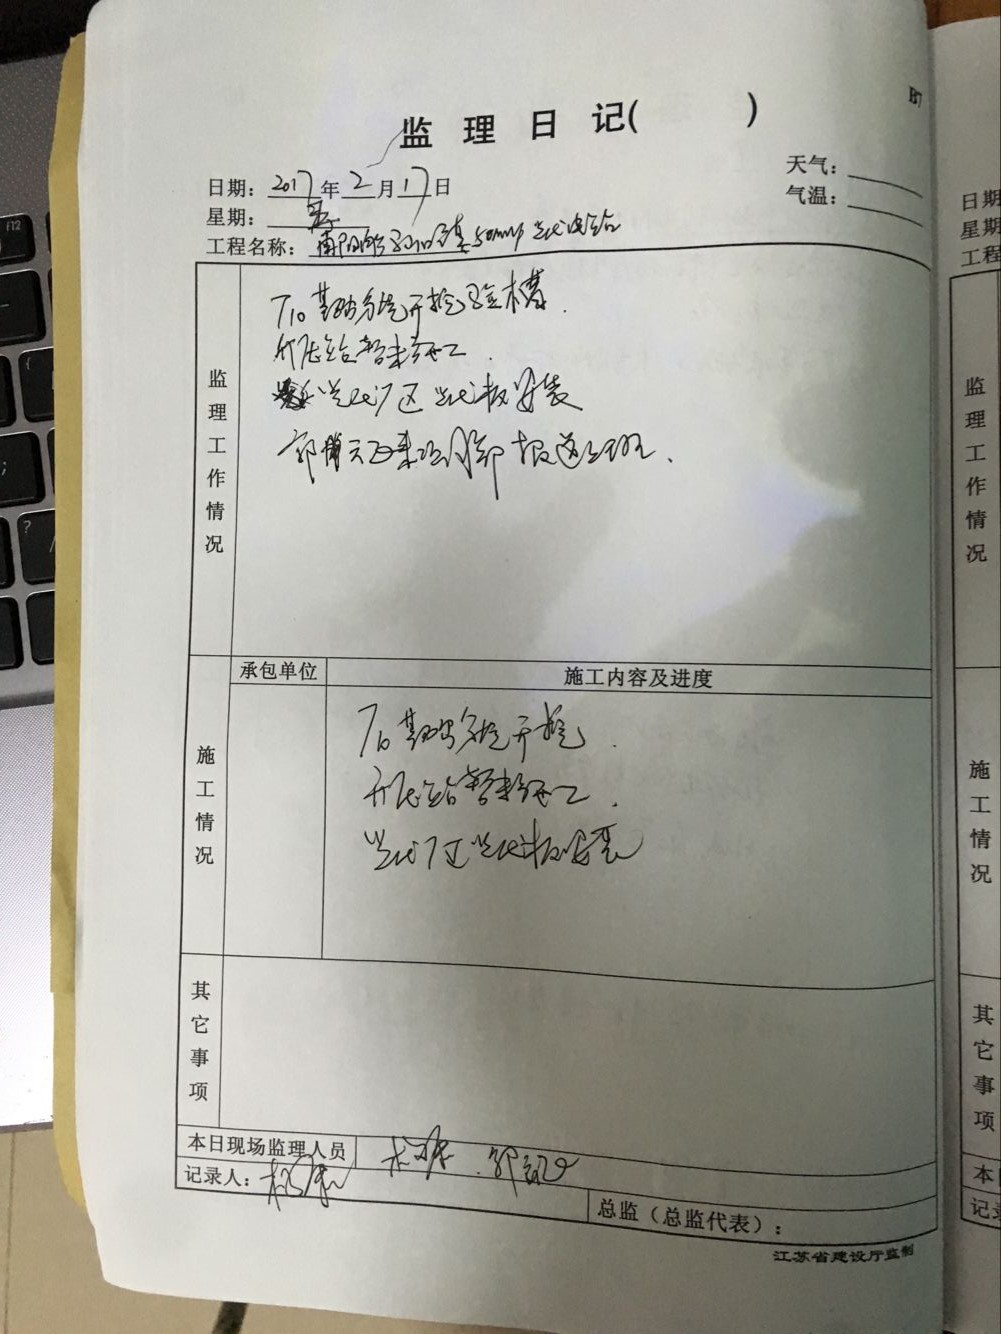 B7
监理日记( )
日期：2017年2月17日
天气：
星期：五
气温：
工程名称：南阳 镇50mwp光伏电站
监理工作情况
T10基础分坑开挖验槽.
开压站暂未施工.
光伏厂区光伏板安装
郭 天 来项目部报道上班.
承包单位
施工内容及进度
施工情况
T10基础分坑开挖.
开压站暂未施工.
光伏厂区光伏板安装
其它事项
本日现场监理人员
记录人：
总监（总监代表）：
江苏省建设厅监制
日期
星期
工程
监理工作情况
施工情况
其它事项
本
记录